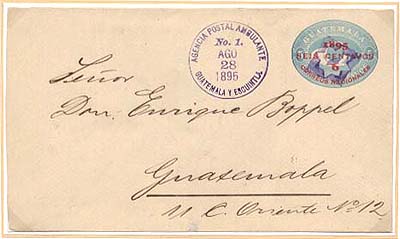 AGENCIA POSTAL AMBULANTE
No. 1.
AGO
28
1895
GUATEMALA Y ESQUINTLA.
GUATEMALA
1895
SEIS CENTAVOS
6
CORREOS NACIONALES
Señor
Don Enrique Boppel
Guatemala
11 C. Oriente No 12